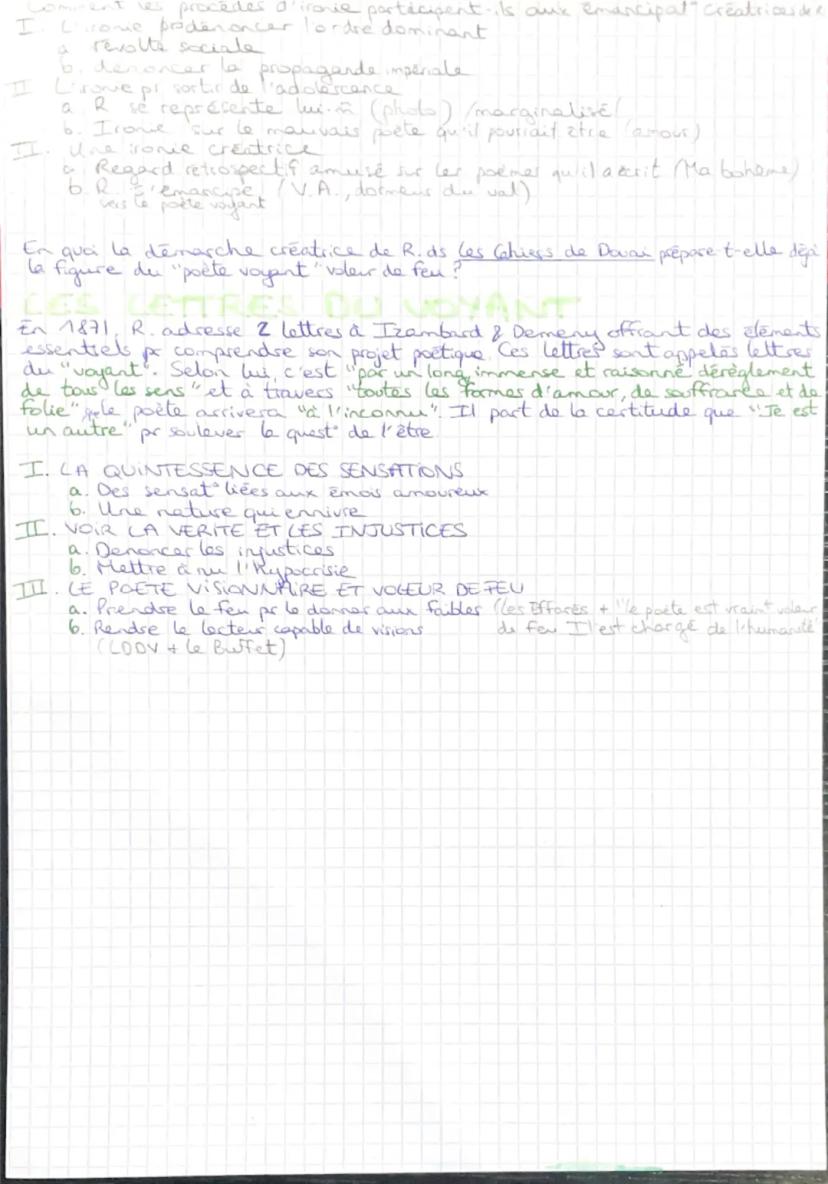 Comment les procédés d'ironie participent-ils aux émancipat° créatrices de R
I. L'ironie pr dénoncer l'ordre dominant
a révolte sociale
b. dénoncer la propagande impériale
II L'ironie pr sortir de l'adolescence
a. R se représente lui-m̂ (photo) /marginalisé/
b. Ironie sur le mauvais poète qu'il pourrait être (amour)
II. Une ironie créatrice
a. Regard rétrospectif amusé sur les poèmes qu'il a écrit (Ma bohème)
b. R. s'émancipe (V.A., dormeur du val)
vers le poète voyant
En quoi la démarche créatrice de R. ds les Cahiers de Douai prépare t-elle déjà
la figure du "poète voyant" voleur de feu ?
LES LETTRES DU VOYANT
En 1871, R. adresse 2 lettres à Izambard & Demeny offrant des éléments
essentiels pr comprendre son projet poétique. Ces lettres sont appelés lettres
du "voyant". Selon lui, c'est "par un long, immense et raisonné dérèglement
de tous les sens" et à travers "toutes les formes d'amour, de souffrance et de
folie" q le poète arrivera "à l'inconnu". Il part de la certitude que "Je est
un autre" pr soulever la quest° de l'être
I. LA QUINTESSENCE DES SENSATIONS
a. Des sensat° liées aux émois amoureux
b. Une nature qui ennivre
II. VOIR LA VERITE ET LES INJUSTICES
a. Dénoncer les injustices
b. Mettre à nu l'hypocrisie
III. LE POETE VISIONNAIRE ET VOLEUR DE FEU
a. Prendre le feu pr le donner aux faibles (les Effarés + "le poète est vraint voleur
de feu Il est chargé de l'humanité"
b. Rendre le lecteur capable de visions
(LDDV + le Buffet)